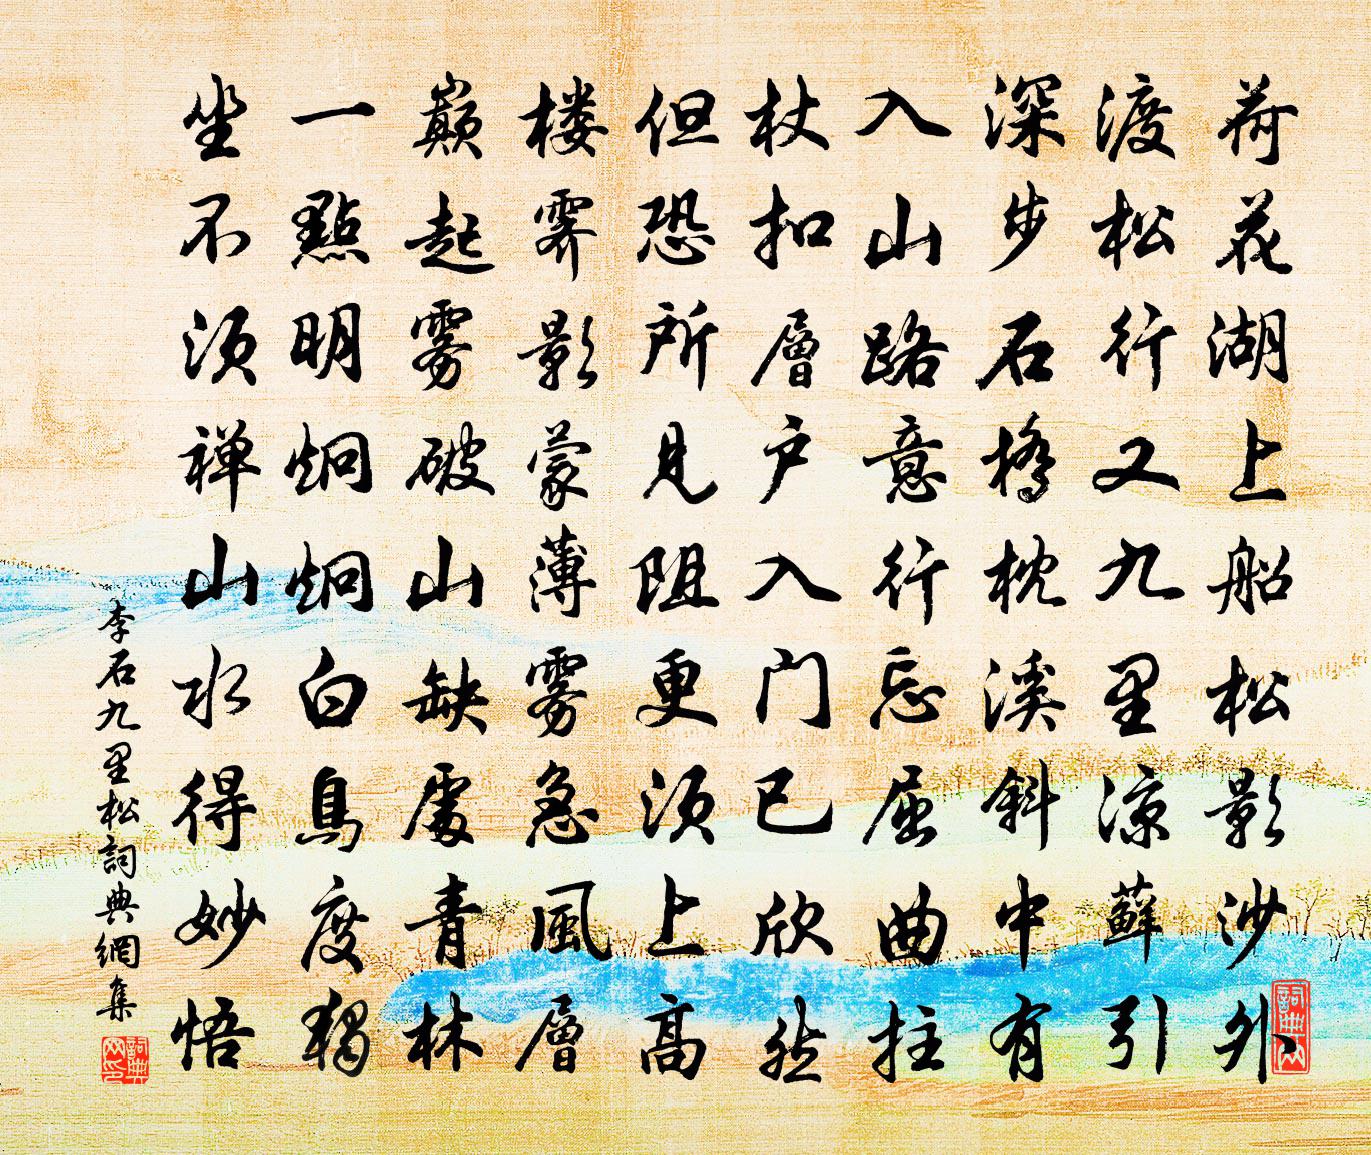 荷花湖上船松影沙外
渡松行又九里涼蘚引
深步石橋枕溪斜中有
入山路意行忘屈曲拄
杖扣層户入门已欣然
但恐所見阻更須上高
楼霁影蒙薄雾急風層
巅起雾破山缺處青林
一點明炯炯白鳥度獨
坐不須禅山水得妙悟
李石九里松詞典網集
詞典网
詞典网印